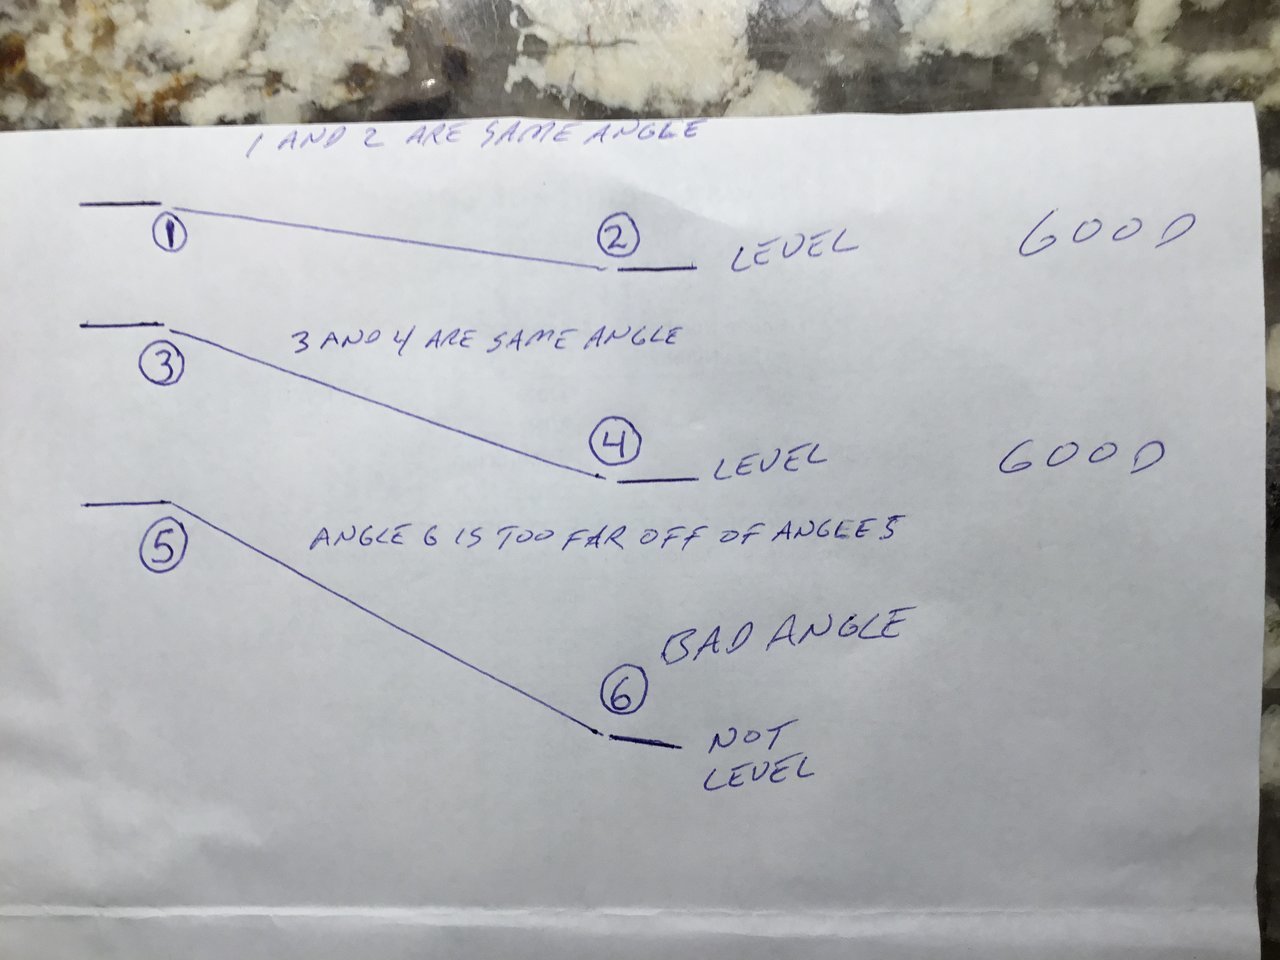 1 AND 2 ARE SAME ANGLE
1
2
LEVEL
GOOD
3 AND 4 ARE SAME ANGLE
3
4
LEVEL
GOOD
ANGLE 6 IS TOO FAR OFF OF ANGLE 5
5
BAD ANGLE
6
NOT
LEVEL